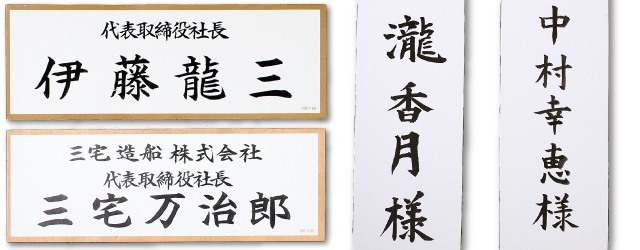 代表取締役社長
伊藤龍三
三宅造船株式会社
代表取締役社長
三宅万治郎
瀧香月様
中村幸恵様